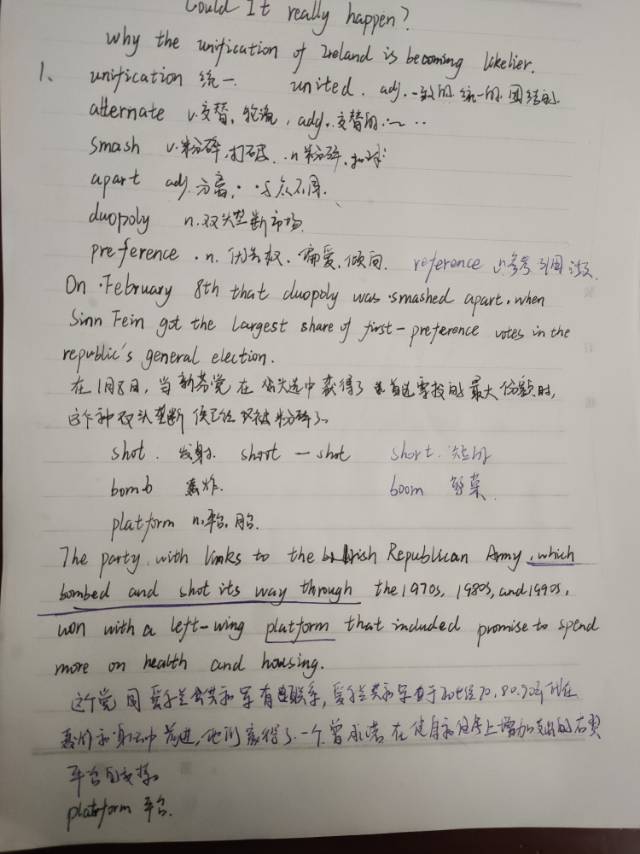 Could It really happen?
why the unification of Ireland is becoming likelier.
1. unification 统一 united. adj. 一致的 统一的 团结的
alternate v.交替, 轮流, adj.交替的
smash v.粉碎,打破. n 粉碎,
apart adj 分离, 与众不同.
duopoly n.双头垄断市场
preference n. 优先权. 偏爱.倾向. reference n参考 引用 涉及
On February 8th that duopoly was smashed apart, when
Sinn Fein got the largest share of first-preference votes in the
republic's general election.
在1月8日, 当新芬党 在 大选中获得了 首选票投的最大份额时,
这种双头垄断 被粉碎了.
shot. 发射. shoot — shot short. 短的
bomb 轰炸. boom 繁荣
platform n.平台. 月台.
The party, with links to the Irish Republican Army, which
bombed and shot its way through the 1970s, 1980s, and 1990s,
won with a left-wing platform that included promise to spend
more on health and housing.
这个党 同 爱尔兰共和军有联系, 爱尔兰共和军 于20世纪70.80.90年代在
轰炸和射击中前进, 他们赢得了一个 曾承诺 在健康和住房上增加支出的右翼
平台的支持.
platform 平台.